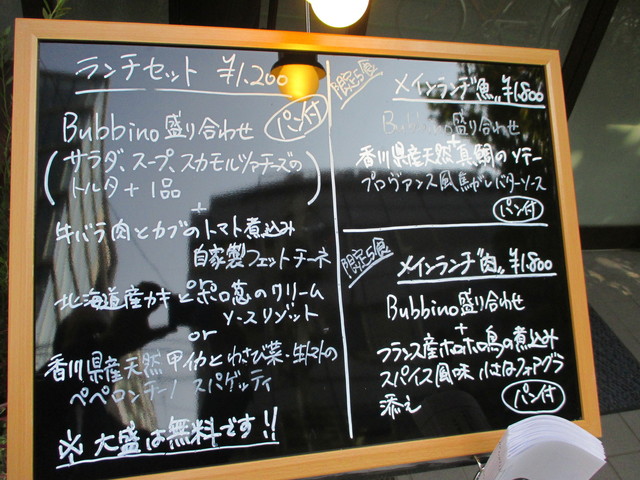 ランチセット ¥1,200
Bubbino盛り合わせ パン付
(サラダ、スープ、スカモルツァチーズの
トルタ + 1品)
+
牛バラ肉とカブのトマト煮込み
自家製フェットチーネ
北海道産カキとポロ葱のクリーム
ソースリゾット
or
香川県産天然甲イカとわさび菜・生トマトの
ペペロンチーノ スパゲッティ
※大盛は無料です!!
限定5食
メインランチ"魚" ¥1,800
Bubbino盛り合わせ
+
香川県産天然真鯛のソテー
プロヴァンス風焦がしバターソース
パン付
限定5食
メインランチ"肉" ¥1,800
Bubbino盛り合わせ
+
フランス産ホロホロ鳥の煮込み
スパイス風味 小さなフォアグラ
添え
パン付